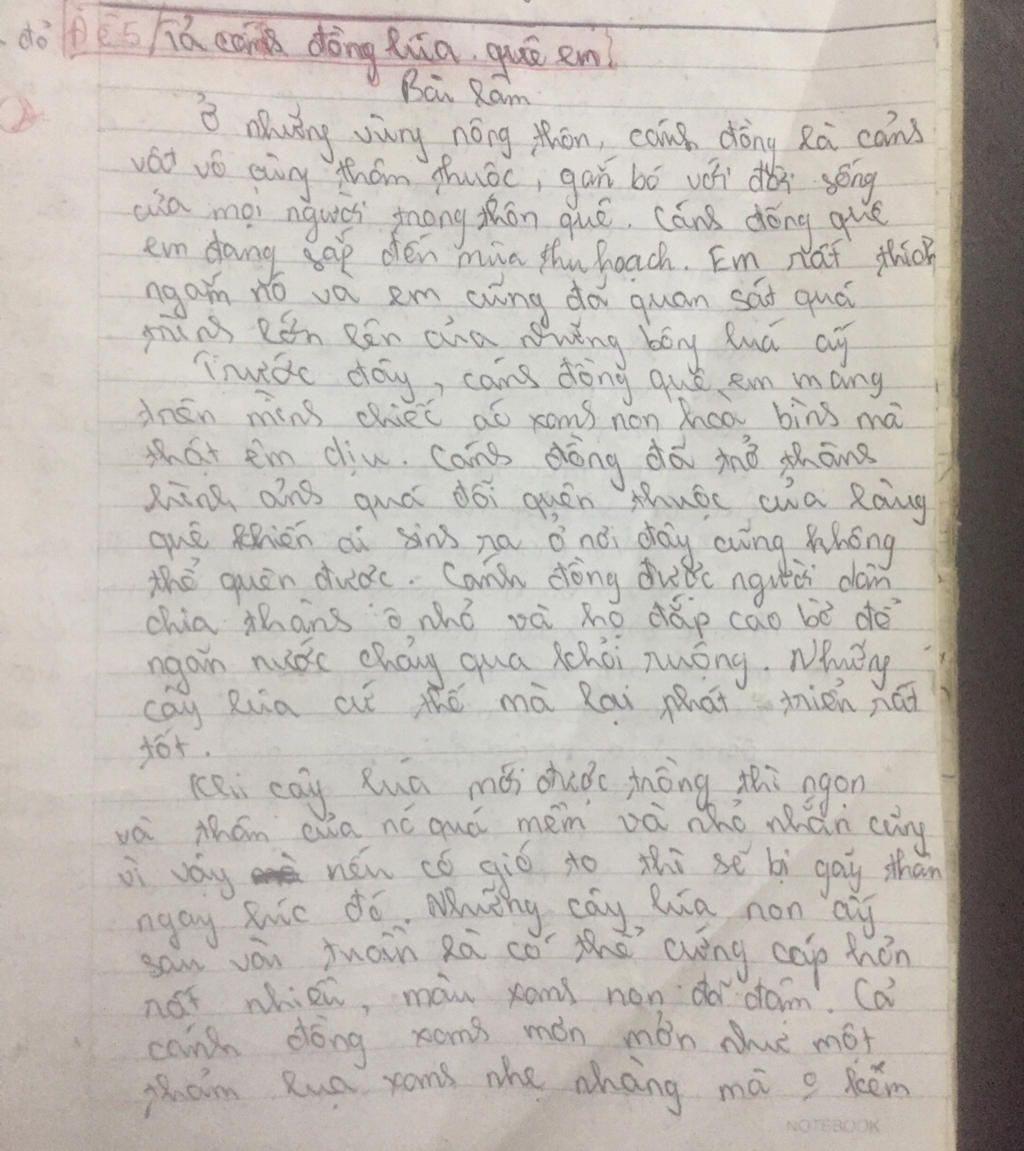 đỏ Đề 5/Tả cánh đồng lúa quê em
Bài làm
Ở những vùng nông thôn, cánh đồng là cảnh
vật vô cùng thân thuộc, gắn bó với đời sống
của mọi người trong thôn quê. Cánh đồng quê
em đang sắp đến mùa thu hoạch. Em rất thích
ngắm nó và em cũng đã quan sát quá
trình lớn lên của những bông luá ấy
Trước đây, cánh đồng quê em mang
trên mình chiếc aó xanh non hoà bình mà
thật êm dịu. Cánh đồng đã trở thành
hình ảnh quá đỗi quên thuộc của làng
quê khiến ai sinh ra ở nơi đây cũng không
thể quên được. Cánh đồng được người dân
chia thành ô nhỏ và họ đắp cao bờ để
ngăn nước chảy qua khỏi ruộng. Những
cây lúa cứ thế mà lại phát triển rất
tốt.
Khi cây luá mới được trồng thì ngọn
và thân của nó quá mềm và nhỏ nhắn cũng
vì vậy nếu có gió to thì sẽ bị gãy thân
ngay lúc đó. Những cây lúa non ấy
sau vài tuần là có thể cứng cáp hơn
rất nhiều, màu xanh non đã đậm. Cả
cánh đồng xanh mơn mởn như một
thảm lụa xanh nhẹ nhàng mà o kém
NOTEBOOK